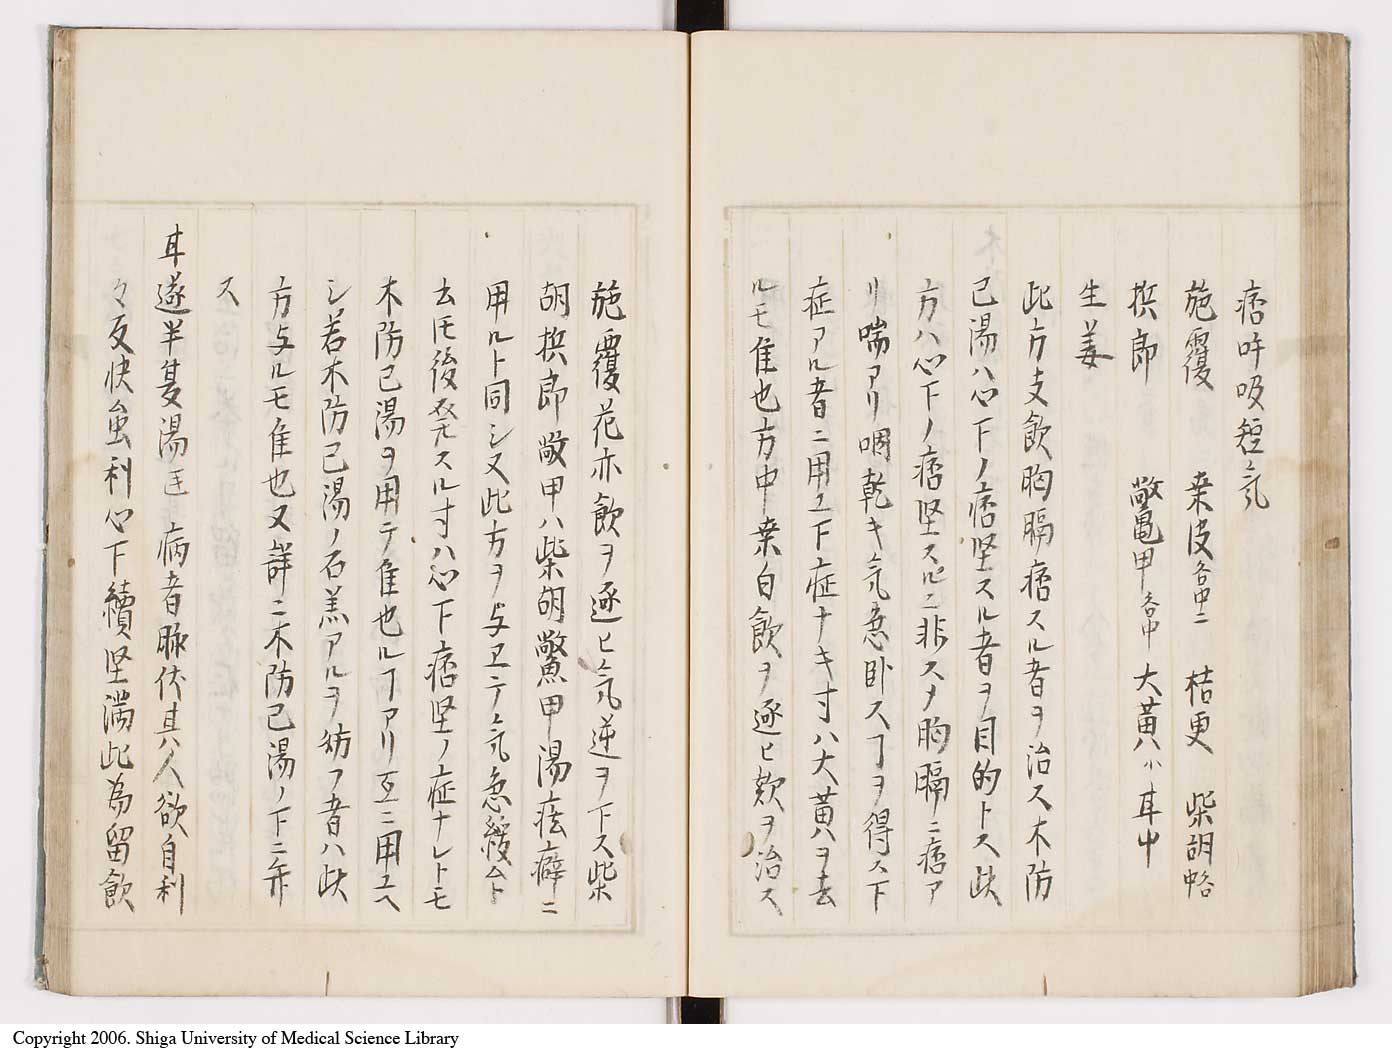 痞呼吸短気
旋覆 桒皮各中二 桔更 柴胡中略
梹郎 鱉甲各中 大黄小 耳中
生姜
此方支飲胸膈痞スル者ヲ治ス木防
已湯ハ心下ノ痞坚スル者ヲ目的トス此
方ハ心下ノ痞坚スルニ非スメ胸膈ニ痞ア
リ喘アリ咽乾キ気急卧スヿヲ得ス下
症アル者ニ用ユ下症ナキ寸ハ大黄ヲ去
ルモ隹也方中桒白飲ヲ逐ヒ欬ヲ治ス
旋覆花亦飲ヲ逐ヒ気逆ヲ下ス柴
胡梹郎鱉甲ハ柴胡鱉甲湯痃癖ニ
用ルト同シ又此方ヲ与ヱテ気急緩ムト
厶モ後発スル寸ハ心下痞坚ノ症ナレトモ
木防已湯ヲ用テ隹也ルヿアリ互ニ用ユヘ
シ若木防已湯ノ石羔アルヲ妨フ者ハ此
方与ルモ隹也又詳ニ木防已湯ノ下ニ弁
ス
耳遂半夏湯 病者脉伏其人欲自利
々反快虽利心下續坚満此為留飲
Copyright 2006. Shiga University of Medical Science Library